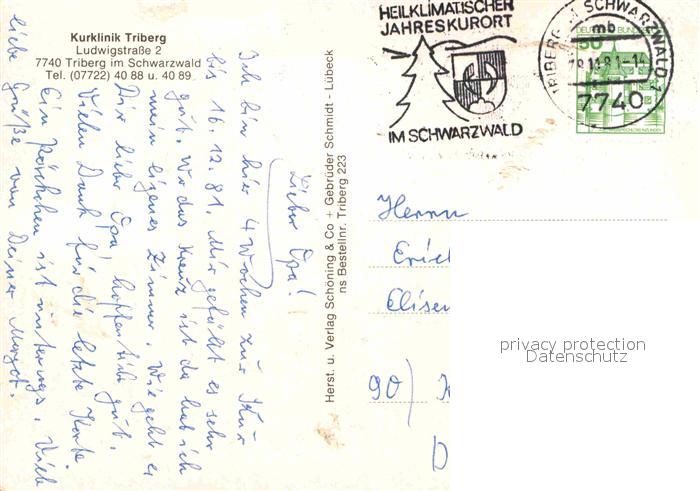 Kurklinik Triberg
Ludwigstraße 2
7740 Triberg im Schwarzwald
Tel. (07722) 40 88 u. 40 89
Lieber Opa!
Ich bin hier 4 Wochen zur Kur
bis 16.12.81. Mir gefällt es sehr
gut. Wo das Kreuz ist da hab ich
mein eigenes Zimmer. Wie geht es
Dir lieber Opa, hoffentlich gut.
Vielen Dank für die letzte Karte
Ein Päckchen ist unterwegs. Viele
liebe Grüße von Deiner Margot.
Herst. u. Verlag Schöning & Co + Gebrüder Schmidt - Lübeck
ns Bestellnr. Triberg 223
HEILKLIMATISCHER
JAHRESKURORT
IM SCHWARZWALD
TRIBERG IM SCHWARZWALD 1
mb
7740
DEUTSCHE BUNDES
50
Herrn
Erich
Elisen
privacy protection
Datenschutz
90)